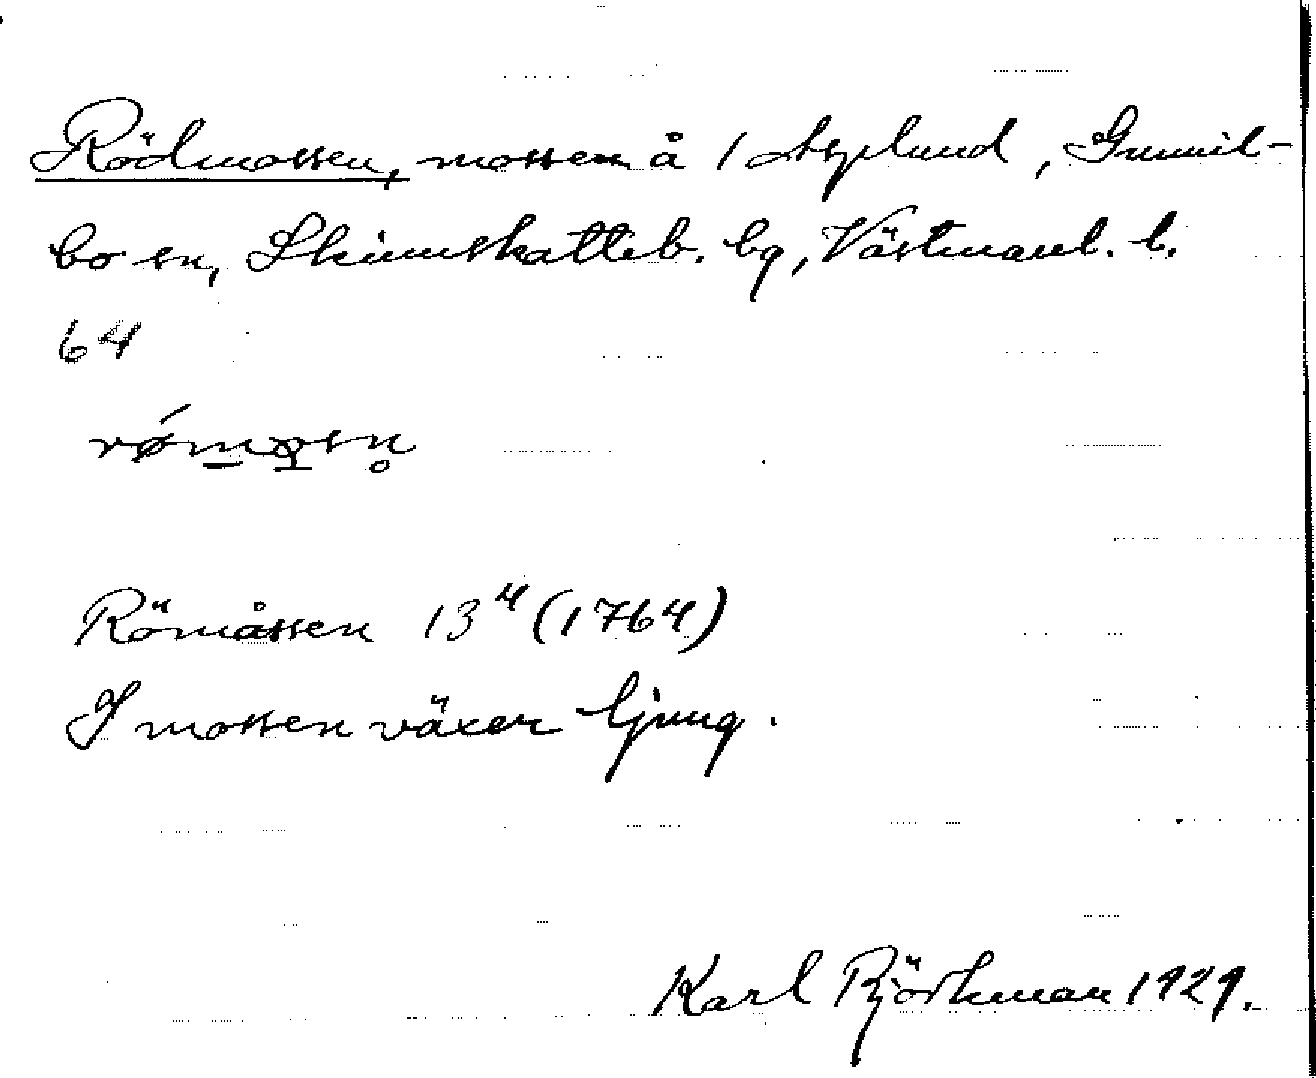 Rödmossen, mossen å 1 Asplund, Gunnil-
bo sn, Skinnskatteb. bg, Västmanl. l.
64
Römåssen 13⁴ (1764)
I mossen växer ljung.
Karl Björkman 1929.